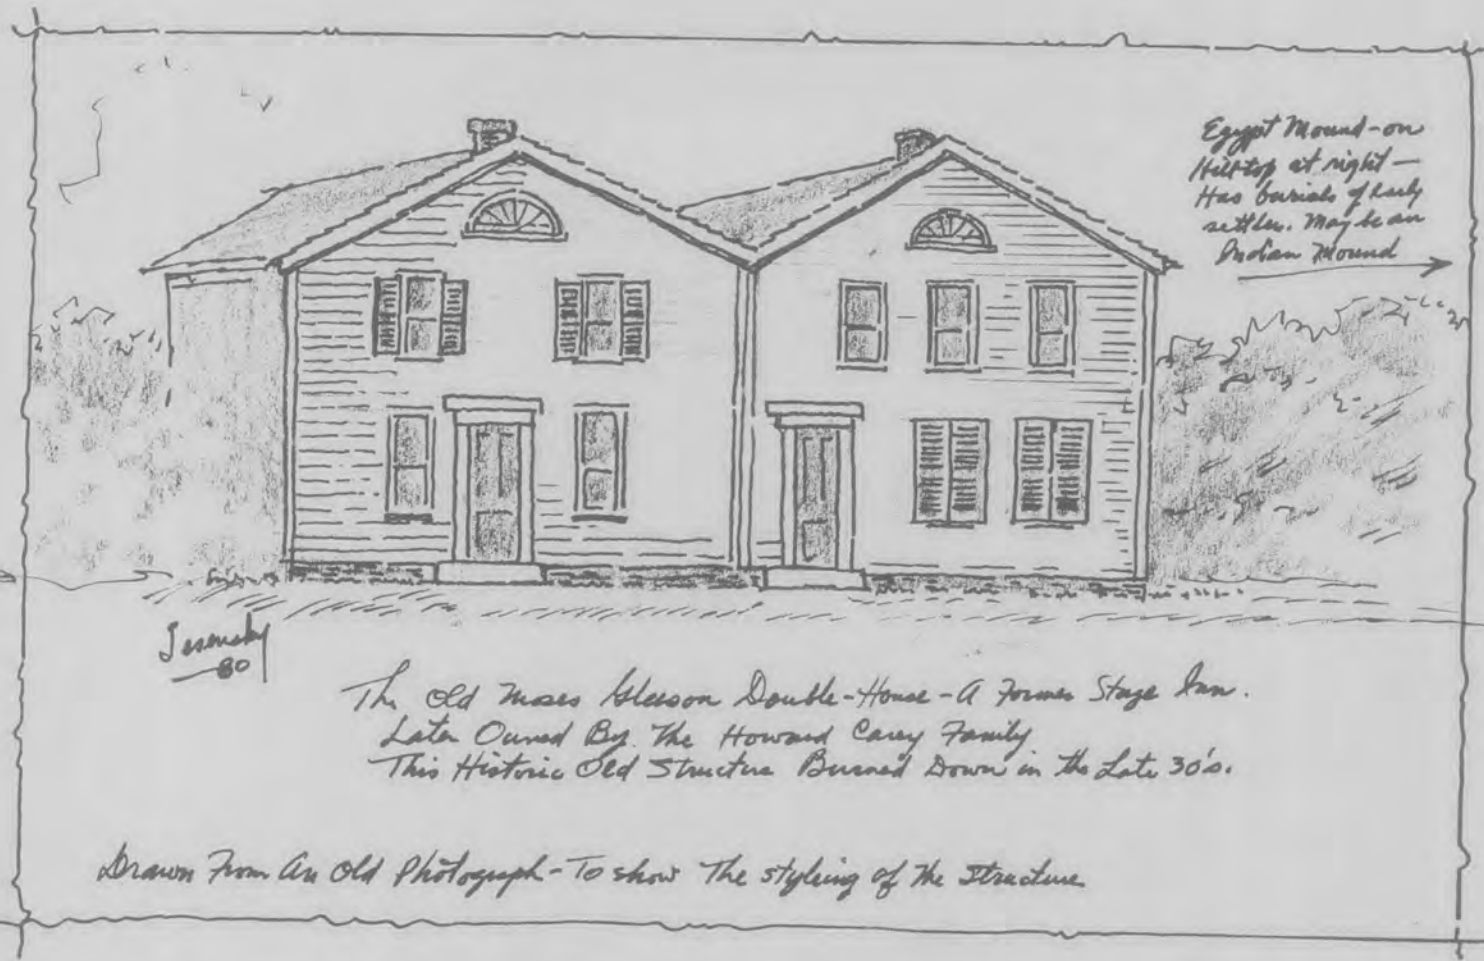 Egypt Mound - on
Hilltop at right -
Has burials of early
settlers. May be an
Indian Mound
Jesensky
80
The Old Moses Gleeson Double-House - A Former Stage Inn.
Later Owned By The Howard Carey Family
This Historic Old Structure Burned Down in the Late 30's.
Drawn From An Old Photograph - To show The styling of The Structure